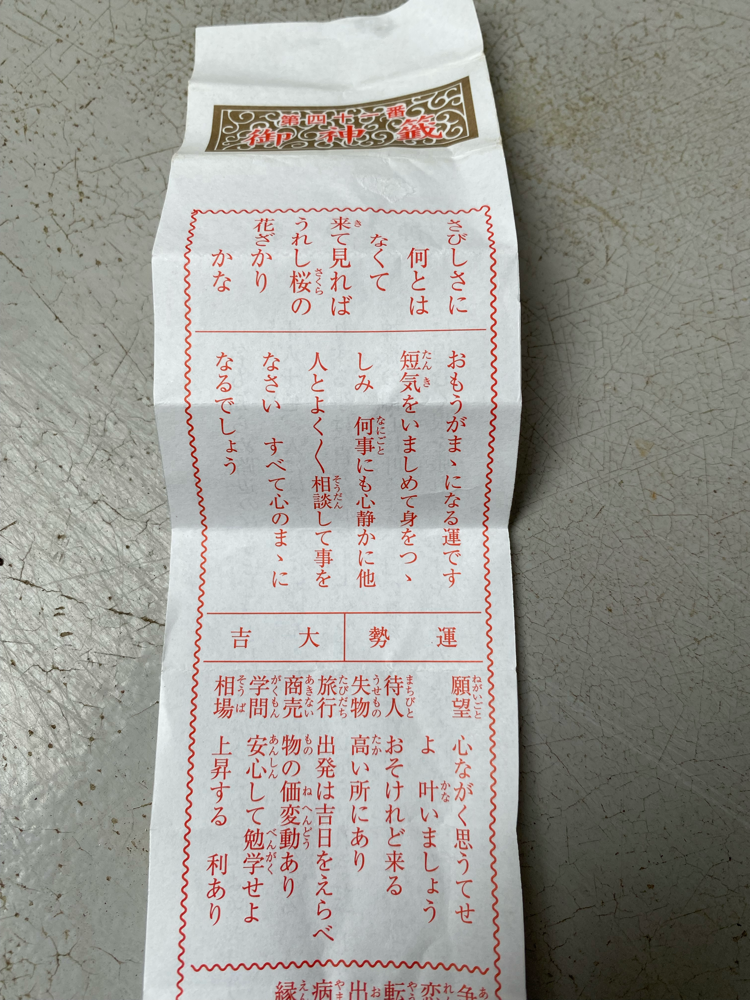 第四十一番
御神籤
さびしさに
何とは
なくて
来て見れば
うれし桜の
花ざかり
かな
おもうがまゝになる運です
短気をいましめて身をつゝ
しみ 何事にも心静かに他
人とよく〱相談して事を
なさい すべて心のまゝに
なるでしょう
運勢 大吉
願望 心ながく思うてせ
よ 叶いましょう
待人 おそけれど来る
失物 高い所にあり
旅行 出発は吉日をえらべ
商売 物の価変動あり
学問 安心して勉学せよ
相場 上昇する 利あり
争
恋
転
出
病
縁